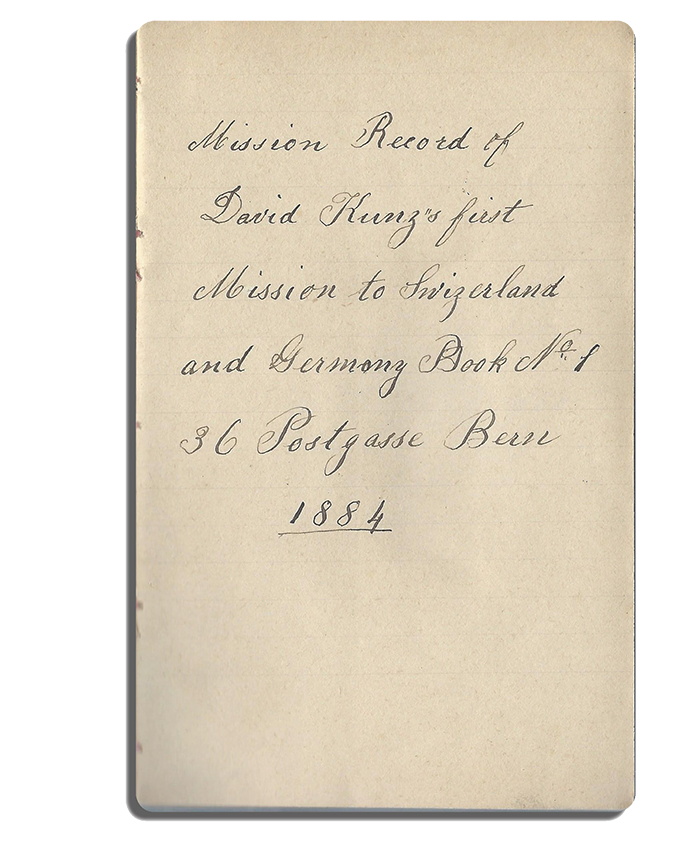 Mission Record of
David Kunz's first
Mission to Swizerland
and Germony Book No. 1
36 Postgasse Bern
1884